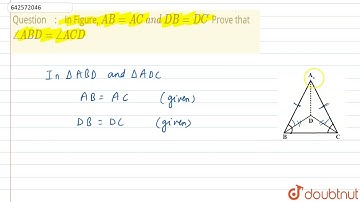 642572046
Question : in Figure, AB = AC and DB = DC Prove that
∠ABD = ∠ACD
In △ABD and △ADC
AB = AC (given)
DB = DC (given)
A
D
B
C
doubtnut